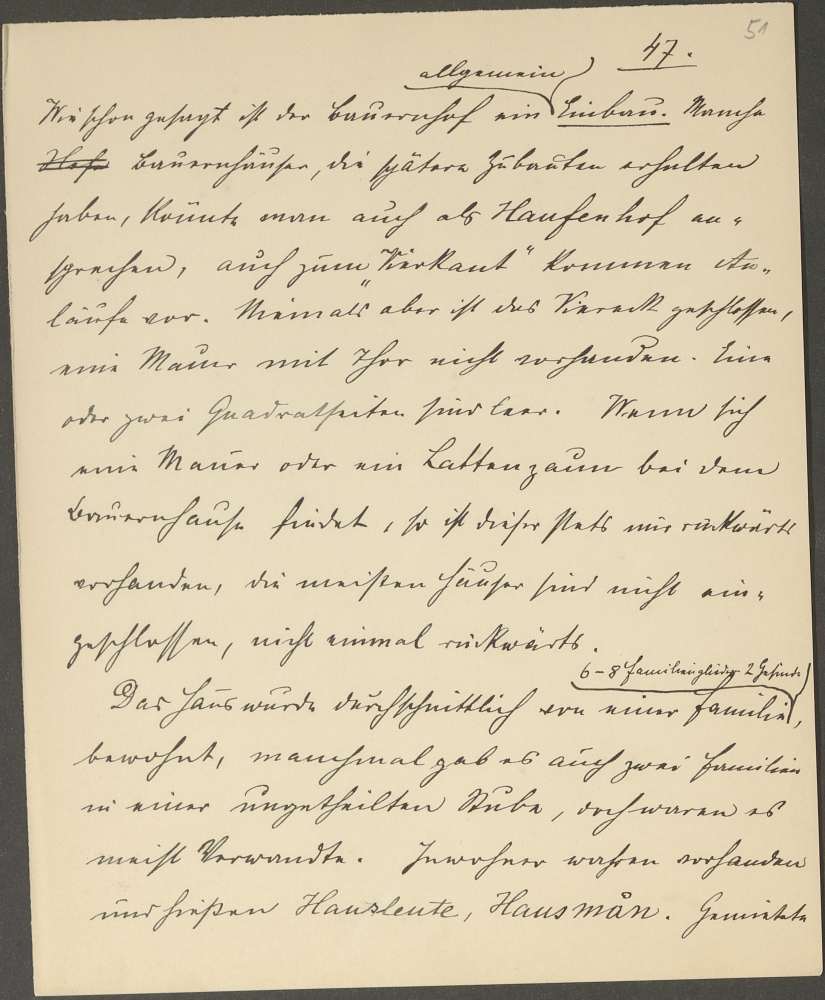 51
47.
allgemein
Wie schon gesagt ist der Bauernhof ein Einbau. Manche
Höfe Bauernhäuser, die spätere Zubauten erhalten
haben, könnte man auch als Haufenhof an-
sprechen, auch zum „Vierkant" kommen An-
läufe vor. Niemals aber ist das Viereck geschlossen,
eine Mauer mit Thor nicht vorhanden. Eine
oder zwei Quadratseiten sind leer. Wenn sich
eine Mauer oder ein Lattenzaun bei dem
Bauernhause findet, so ist dieser stets nur rückwärts
vorhanden, die meisten Häuser sind nicht ein-
geschlossen, nicht einmal rückwärts.
6-8 Familienglieder 2 Gesinde
Das Haus wurde durchschnittlich von einer Familie,
bewohnt, manchmal gab es auch zwei Familien
in einer ungetheilten Stube, doch waren es
meist Verwandte. Inwohner wahren vorhanden
und hießen Hausleute, Hausmån. Gemietete